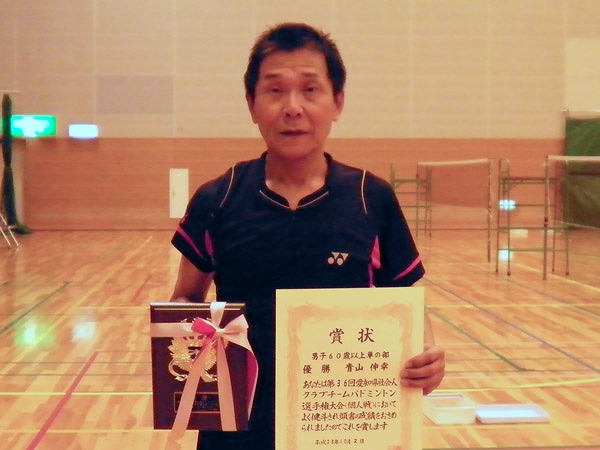 賞状
男子60歳以上単の部
優勝 青山 伸幸
あなたは第36回愛知県社会人
クラブチームバドミントン
選手権大会(個人戦)において
よく健斗され頭書の成績をおさめ
られましたのでこれを賞します
平成28年10月2日